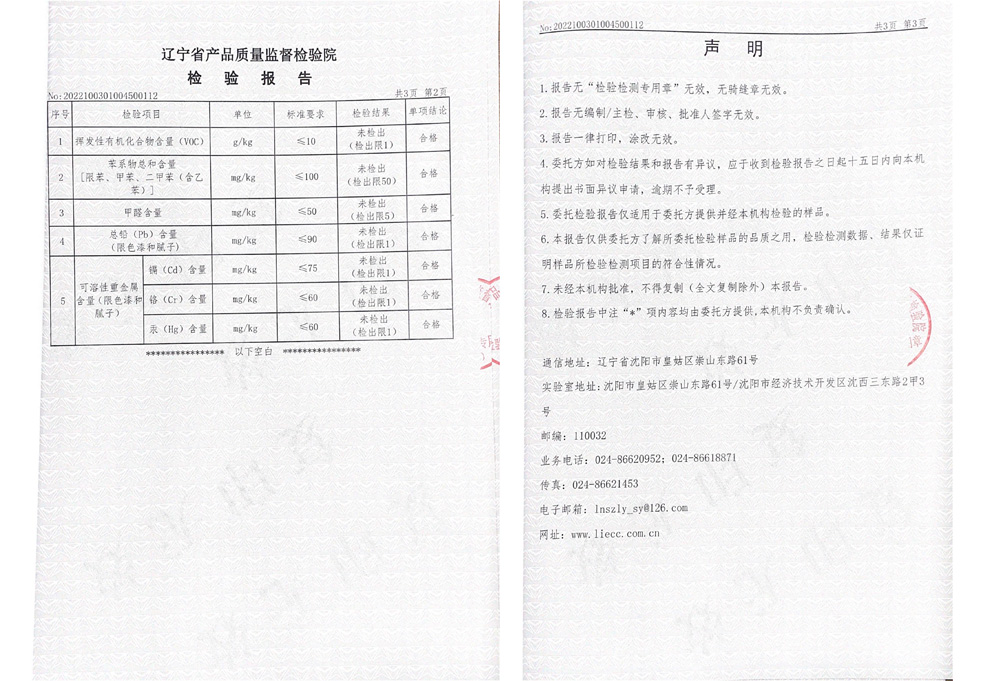 辽宁省产品质量监督检验院
检 验 报 告
No:2022100301004500112 共3页 第2页
序号 检验项目 单位 标准要求 检验结果 单项结论
1 挥发性有机化合物含量（VOC） g/kg ≤10 未检出（检出限1） 合格
2 苯系物总和含量［限苯、甲苯、二甲苯（含乙苯）］ mg/kg ≤100 未检出（检出限50） 合格
3 甲醛含量 mg/kg ≤50 未检出（检出限5） 合格
4 总铅（Pb）含量（限色漆和腻子） mg/kg ≤90 未检出（检出限1） 合格
5 可溶性重金属含量（限色漆和腻子） 镉（Cd）含量 mg/kg ≤75 未检出（检出限1） 合格
铬（Cr）含量 mg/kg ≤60 未检出（检出限1） 合格
汞（Hg）含量 mg/kg ≤60 未检出（检出限1） 合格
**************** 以下空白 ****************
No:2022100301004500112 共3页 第3页
声 明
1.报告无“检验检测专用章”无效，无骑缝章无效。
2.报告无编制/主检、审核、批准人签字无效。
3.报告一律打印，涂改无效。
4.委托方如对检验结果和报告有异议，应于收到检验报告之日起十五日内向本机
构提出书面异议申请，逾期不予受理。
5.委托检验报告仅适用于委托方提供并经本机构检验的样品。
6.本报告仅供委托方了解所委托检验样品的品质之用，检验检测数据、结果仅证
明样品所检验检测项目的符合性情况。
7.未经本机构批准，不得复制（全文复制除外）本报告。
8.检验报告中注“*”项内容均由委托方提供,本机构不负责确认。
通信地址：辽宁省沈阳市皇姑区崇山东路61号
实验室地址:沈阳市皇姑区崇山东路61号/沈阳市经济技术开发区沈西三东路2甲3
号
邮编：110032
业务电话：024-86620952；024-86618871
传真：024-86621453
电子邮箱：lnszly_sy@126.com
网址：www.liecc.com.cn